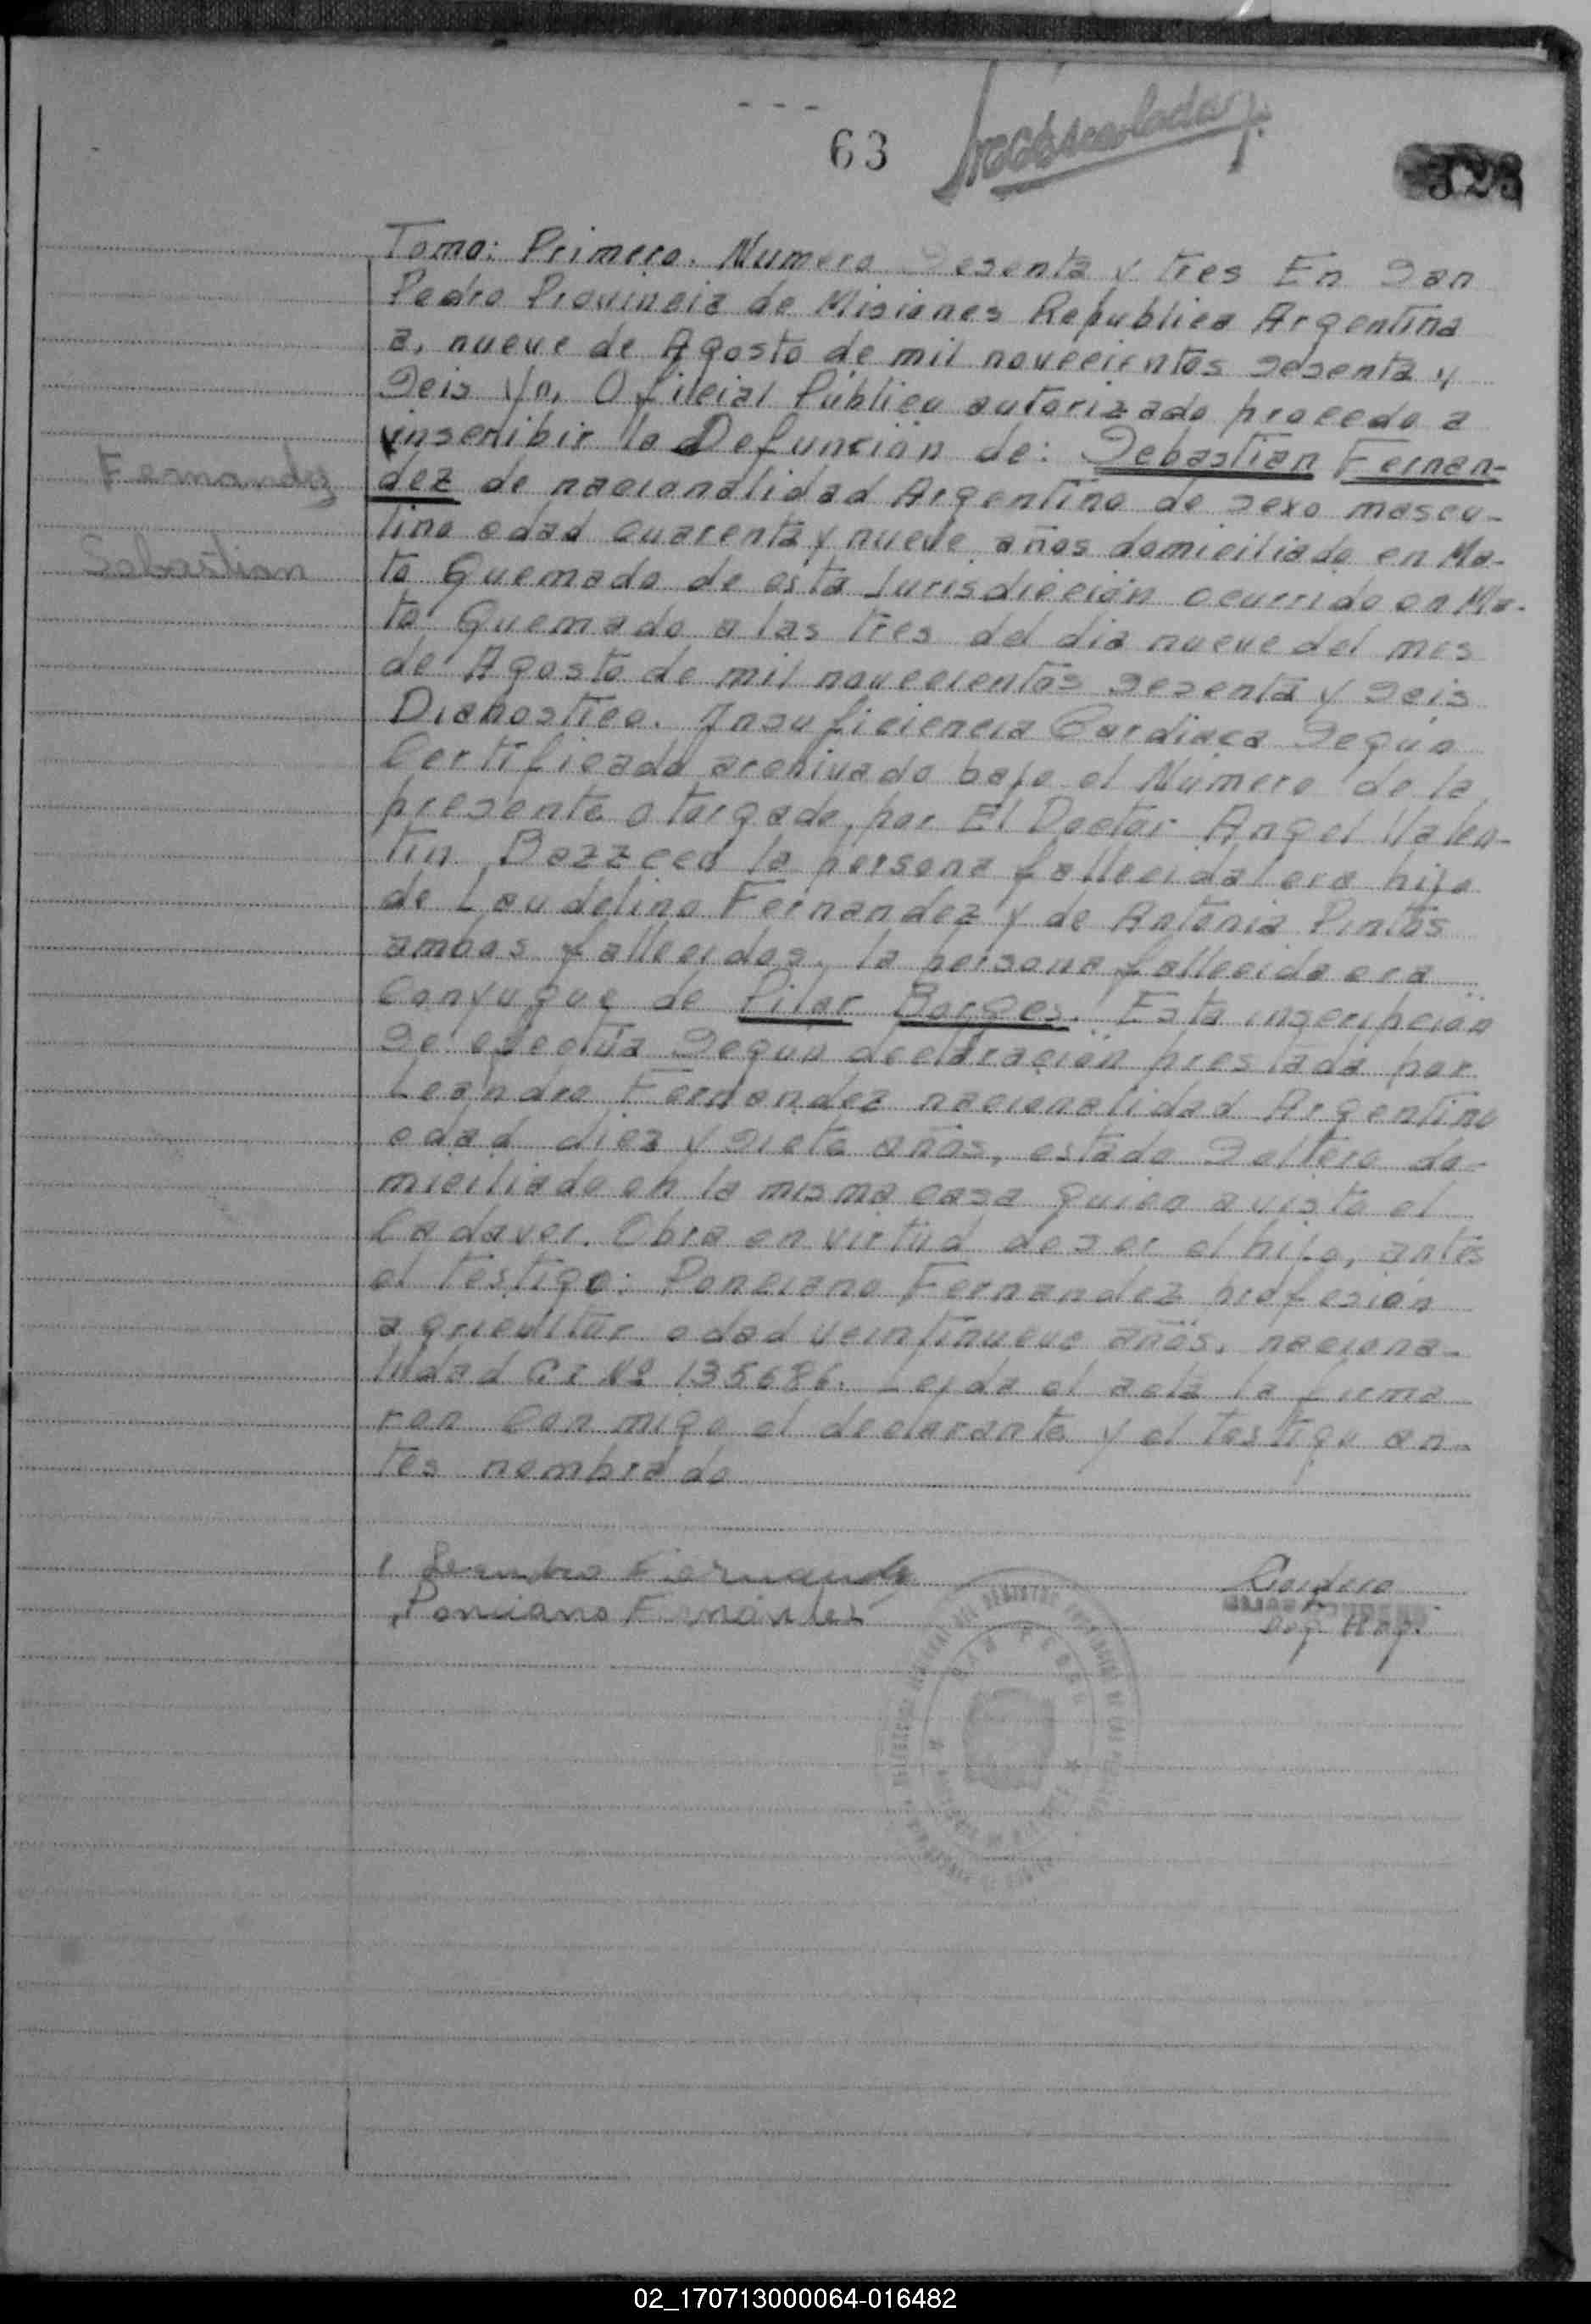 63
Tomo: Primero. Numero Sesenta y tres En San
Pedro Provincia de Misiones Republica Argentina
a, nueve de Agosto de mil novecientos sesenta y
Seis Yo, Oficial Público autorizado procedo a
inscribir la Defunción de: Sebastian Fernan-
Fernandez
dez de nacionalidad Argentino de sexo mascu-
lino edad cuarenta y nueve años domiciliado en Mo-
Sebastian
to Quemado de esta Jurisdicción ocurrido en Mo-
to Quemado a las tres del dia nueve del mes
de Agosto de mil novecientos Sesenta y Seis
Dianostico. Insuficiencia Cardiaca Segun
Certificado archivado bajo el Número de la
presente otorgado, por El Doctor Angel Valen-
tin la persona fallecida era hijo
de Laudelino Fernandez y de Antonia Pintos
ambos fallecidos, la persona fallecida era
Conyugue de Pilar Borges. Esta inscripción
Se efectúa Segun declaración prestada por
Leandro Fernandez nacionalidad Argentino
edad diez y siete años, estado Soltero do-
miciliado en la misma casa quien a visto el
Cadaver. Obra en virtud de ser el hijo, antes
el testigo: Ponciano Fernandez profesión
agricultor edad veintinueve años, naciona-
lidad CI Nº 135686. Leida el acta la firma
ron Conmigo el declarante y el testigo an-
tes nombrado
Leandro Fernandez
Ponciano Fernandez
SAN PEDRO
02_170713000064-016482